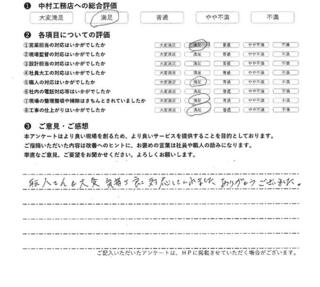 ❶ 中村工務店への総合評価
大変満足 満足 普通 やや不満 不満
❷ 各項目についての評価
①営業担当の対応はいかがでしたか 大変満足 満足 普通 やや不満 不満
②現場監督の対応はいかがでしたか 大変満足 満足 普通 やや不満 不満
③設計担当の対応はいかがでしたか 大変満足 満足 普通 やや不満 不満
④社員大工の対応はいかがでしたか 大変満足 満足 普通 やや不満 不満
⑤職人の対応はいかがでしたか 大変満足 満足 普通 やや不満 不満
⑥社内の電話対応はいかがでしたか 大変満足 満足 普通 やや不満 不満
⑦現場の整理整頓や掃除はきちんとされていましたか 大変満足 満足 普通 やや不満 不満
⑧工事の仕上がりはいかがでしたか 大変満足 満足 普通 やや不満 不満
❸ ご意見・ご感想
本アンケートはより良い現場を創るため、より良いサービスを提供することを目的としております。
ご指摘いただいた内容は改善へのヒントに、お褒めの言葉は社員や職人の励みになります。
率直なご意見、ご要望をお聞かせください。よろしくお願いします。
職人さんも大変気持ち良く対応してくれました。ありがとうございました。
ご記入いただいたアンケートは、HPに掲載させていただく場合がございます。